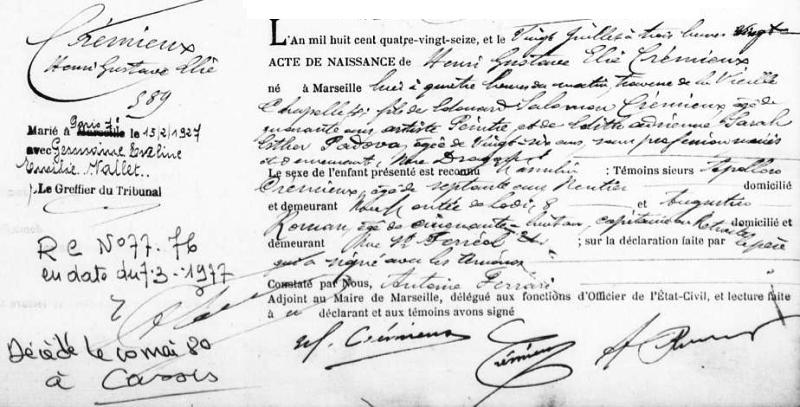 Crémieux
Henri Gustave Elie
589
Marié à Paris Marseille le 15/2/1927
avec Germaine Eveline
Emilie Vallet.
Le Greffier du Tribunal
RC N° 77.76
en date du 7-3-1977
Décédé le 10 mai 80
à Cassis
L'An mil huit cent quatre-vingt-seize, et le Vingt Juillet à trois heures vingt
ACTE DE NAISSANCE de Henri Gustave Elie Crémieux
né à Marseille hier à quatre heures du matin, traverse de la Vieille
Chapelle fils de Edouard Salomon Crémieux âgé de
quarante ans artiste Peintre, et de Judith Adrienne Sarah
Esther Padova, âgée de Vingt-six ans, sans profession mariés
et demeurant, Rue Dragon
Le sexe de l'enfant présenté est reconnu Masculin : Témoins sieurs Apollon
Crémieux, âgé de septante cinq Rentier domicilié
et demeurant Rue Montée de Lodi, 8 et Augustin
Roman, âgé de cinquante-huit ans, capitaine en Retraite domicilié et
demeurant Rue St Ferréol ; sur la déclaration faite par le père
qui a signé avec les témoins
Constaté par Nous, Antoine Ferrari
Adjoint au Maire de Marseille, délégué aux fonctions d'Officier de l'État-Civil, et lecture faite
à u déclarant et aux témoins avons signé
Crémieux
Crémieux